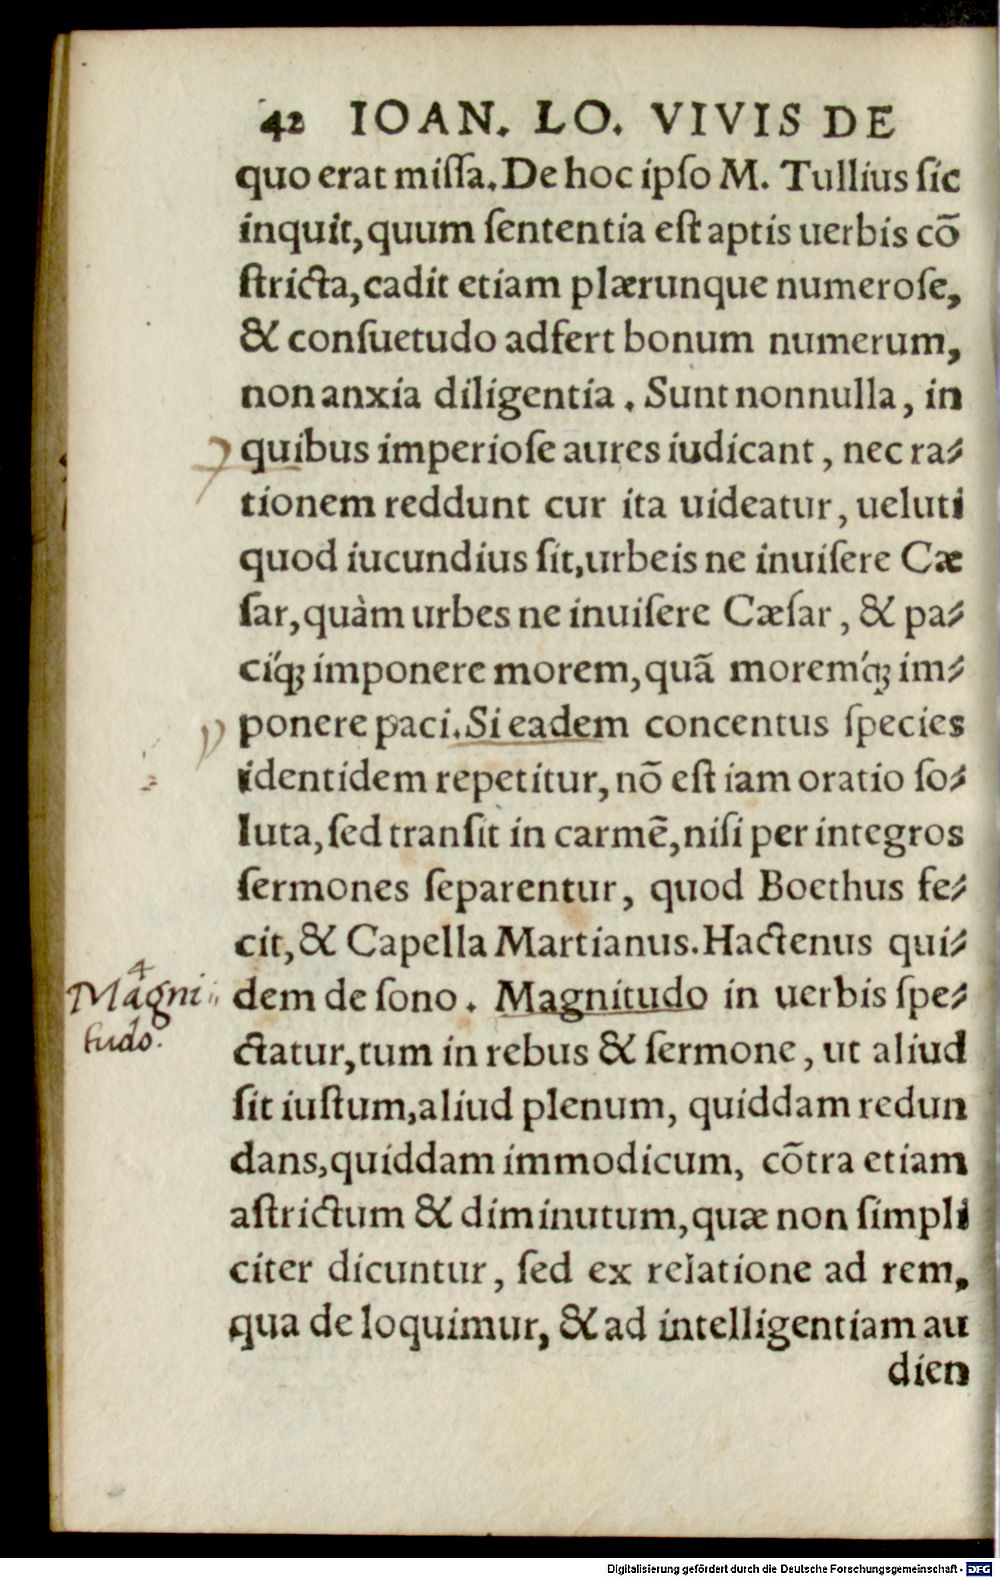 42 IOAN. LO. VIVIS DE
quo erat miſſa. De hoc ipſo M. Tullius ſic
inquit, quum ſententia eſt aptis uerbis cō
ſtricta, cadit etiam plærunque numeroſe,
& conſuetudo adfert bonum numerum,
non anxia diligentia. Sunt nonnulla, in
quibus imperioſe aures iudicant, nec ra⸗
tionem reddunt cur ita uideatur, ueluti
quod iucundius ſit, urbeis ne inuiſere Cæ
ſar, quàm urbes ne inuiſere Cæſar, & pa⸗
ciq́; imponere morem, quā moremq́; im⸗
ponere paci. Si eadem concentus ſpecies
identidem repetitur, nō eſt iam oratio ſo⸗
luta, ſed tranſit in carmē, niſi per integros
ſermones ſeparentur, quod Boethus fe⸗
cit, & Capella Martianus. Hactenus qui⸗
4
Magni⸗
tudo.
dem de ſono. Magnitudo in uerbis ſpe⸗
ctatur, tum in rebus & ſermone, ut aliud
ſit iuſtum, aliud plenum, quiddam redun
dans, quiddam immodicum, cōtra etiam
aſtrictum & diminutum, quæ non ſimpli
citer dicuntur, ſed ex relatione ad rem,
qua de loquimur, & ad intelligentiam au
dien
Digitalisierung gefördert durch die Deutsche Forschungsgemeinschaft - DFG